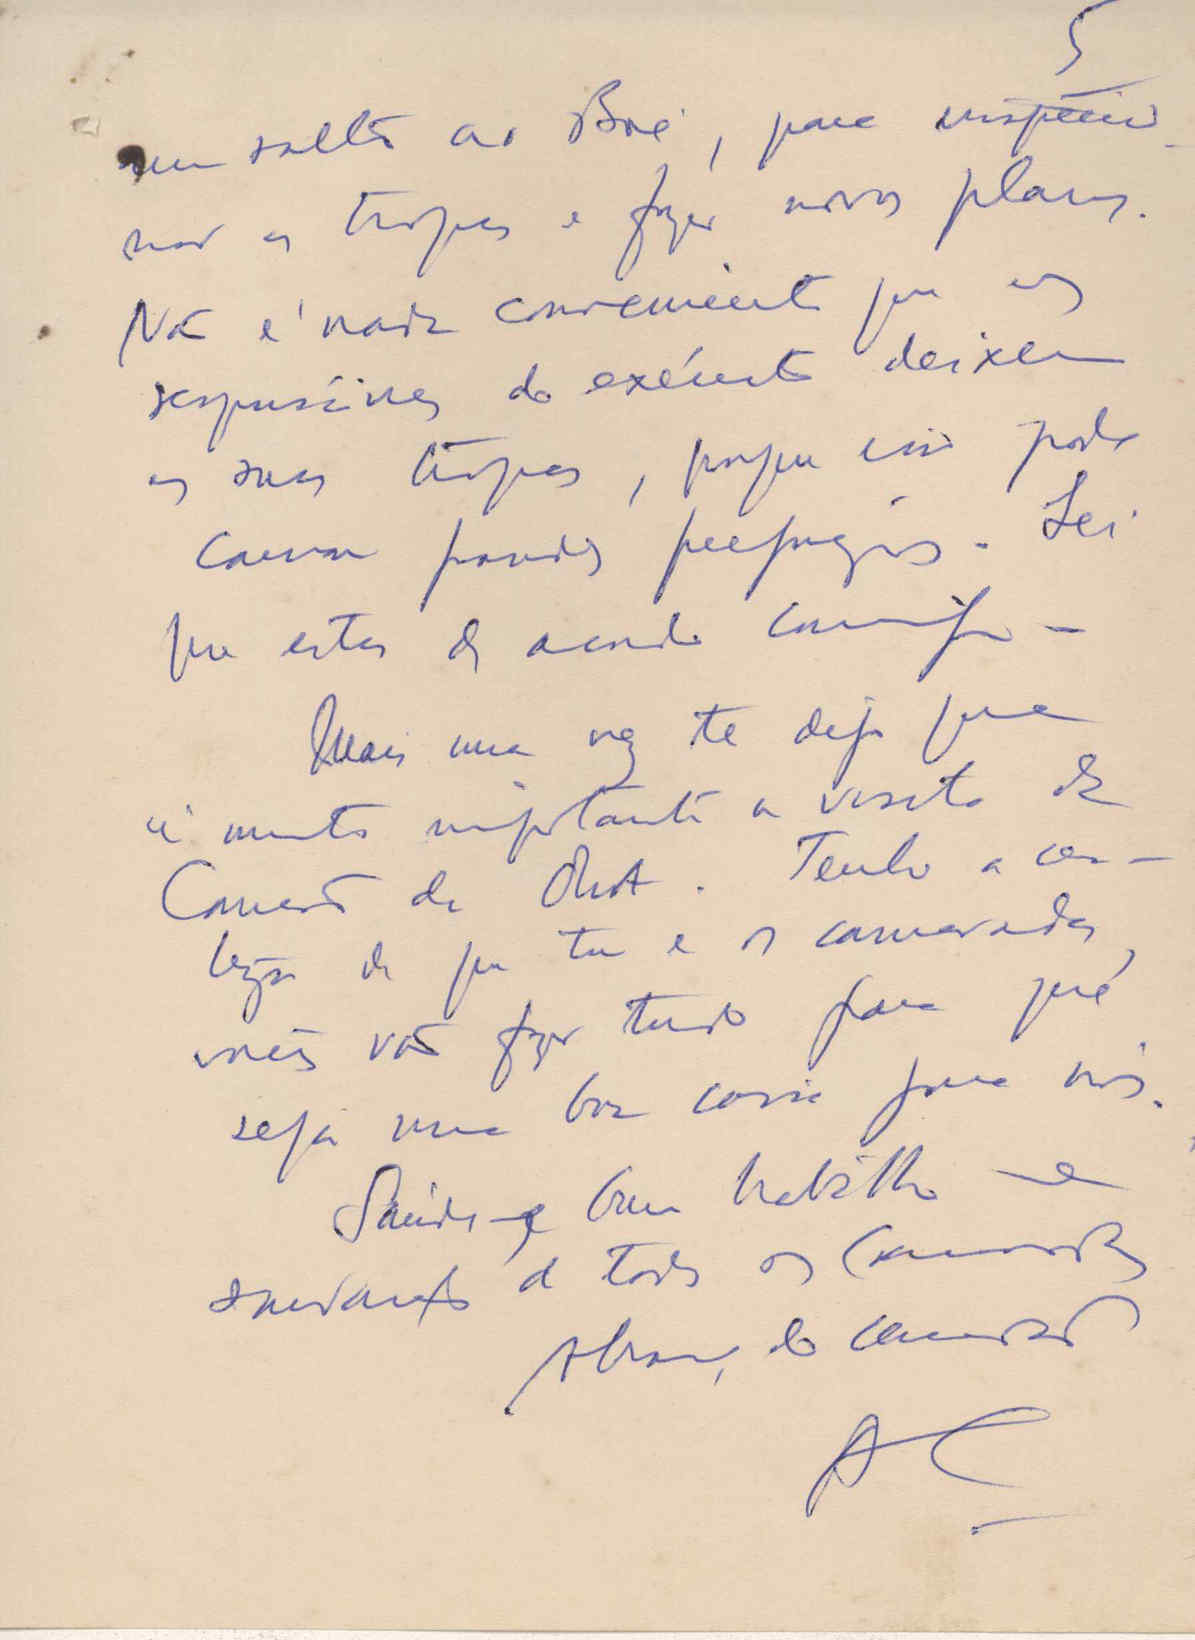 5
um salto ao Boé, para inspeccio-
nar as tropas e fazer novos planos.
Não é nada conveniente que os
responsáveis do exército deixem
as suas tropas, porque isso pode
causar grandes prejuízos. Sei
que estás de acordo comigo -
Mais uma vez te digo que
é muito importante a visita do
Comité da OUA. Tenho a cer-
teza de que tu e os camaradas,
vocês vão fazer tudo para que
seja uma boa coisa para nós.
Saúde e bom trabalho e
saudações a todos os camaradas
Abraço do camarada
AC